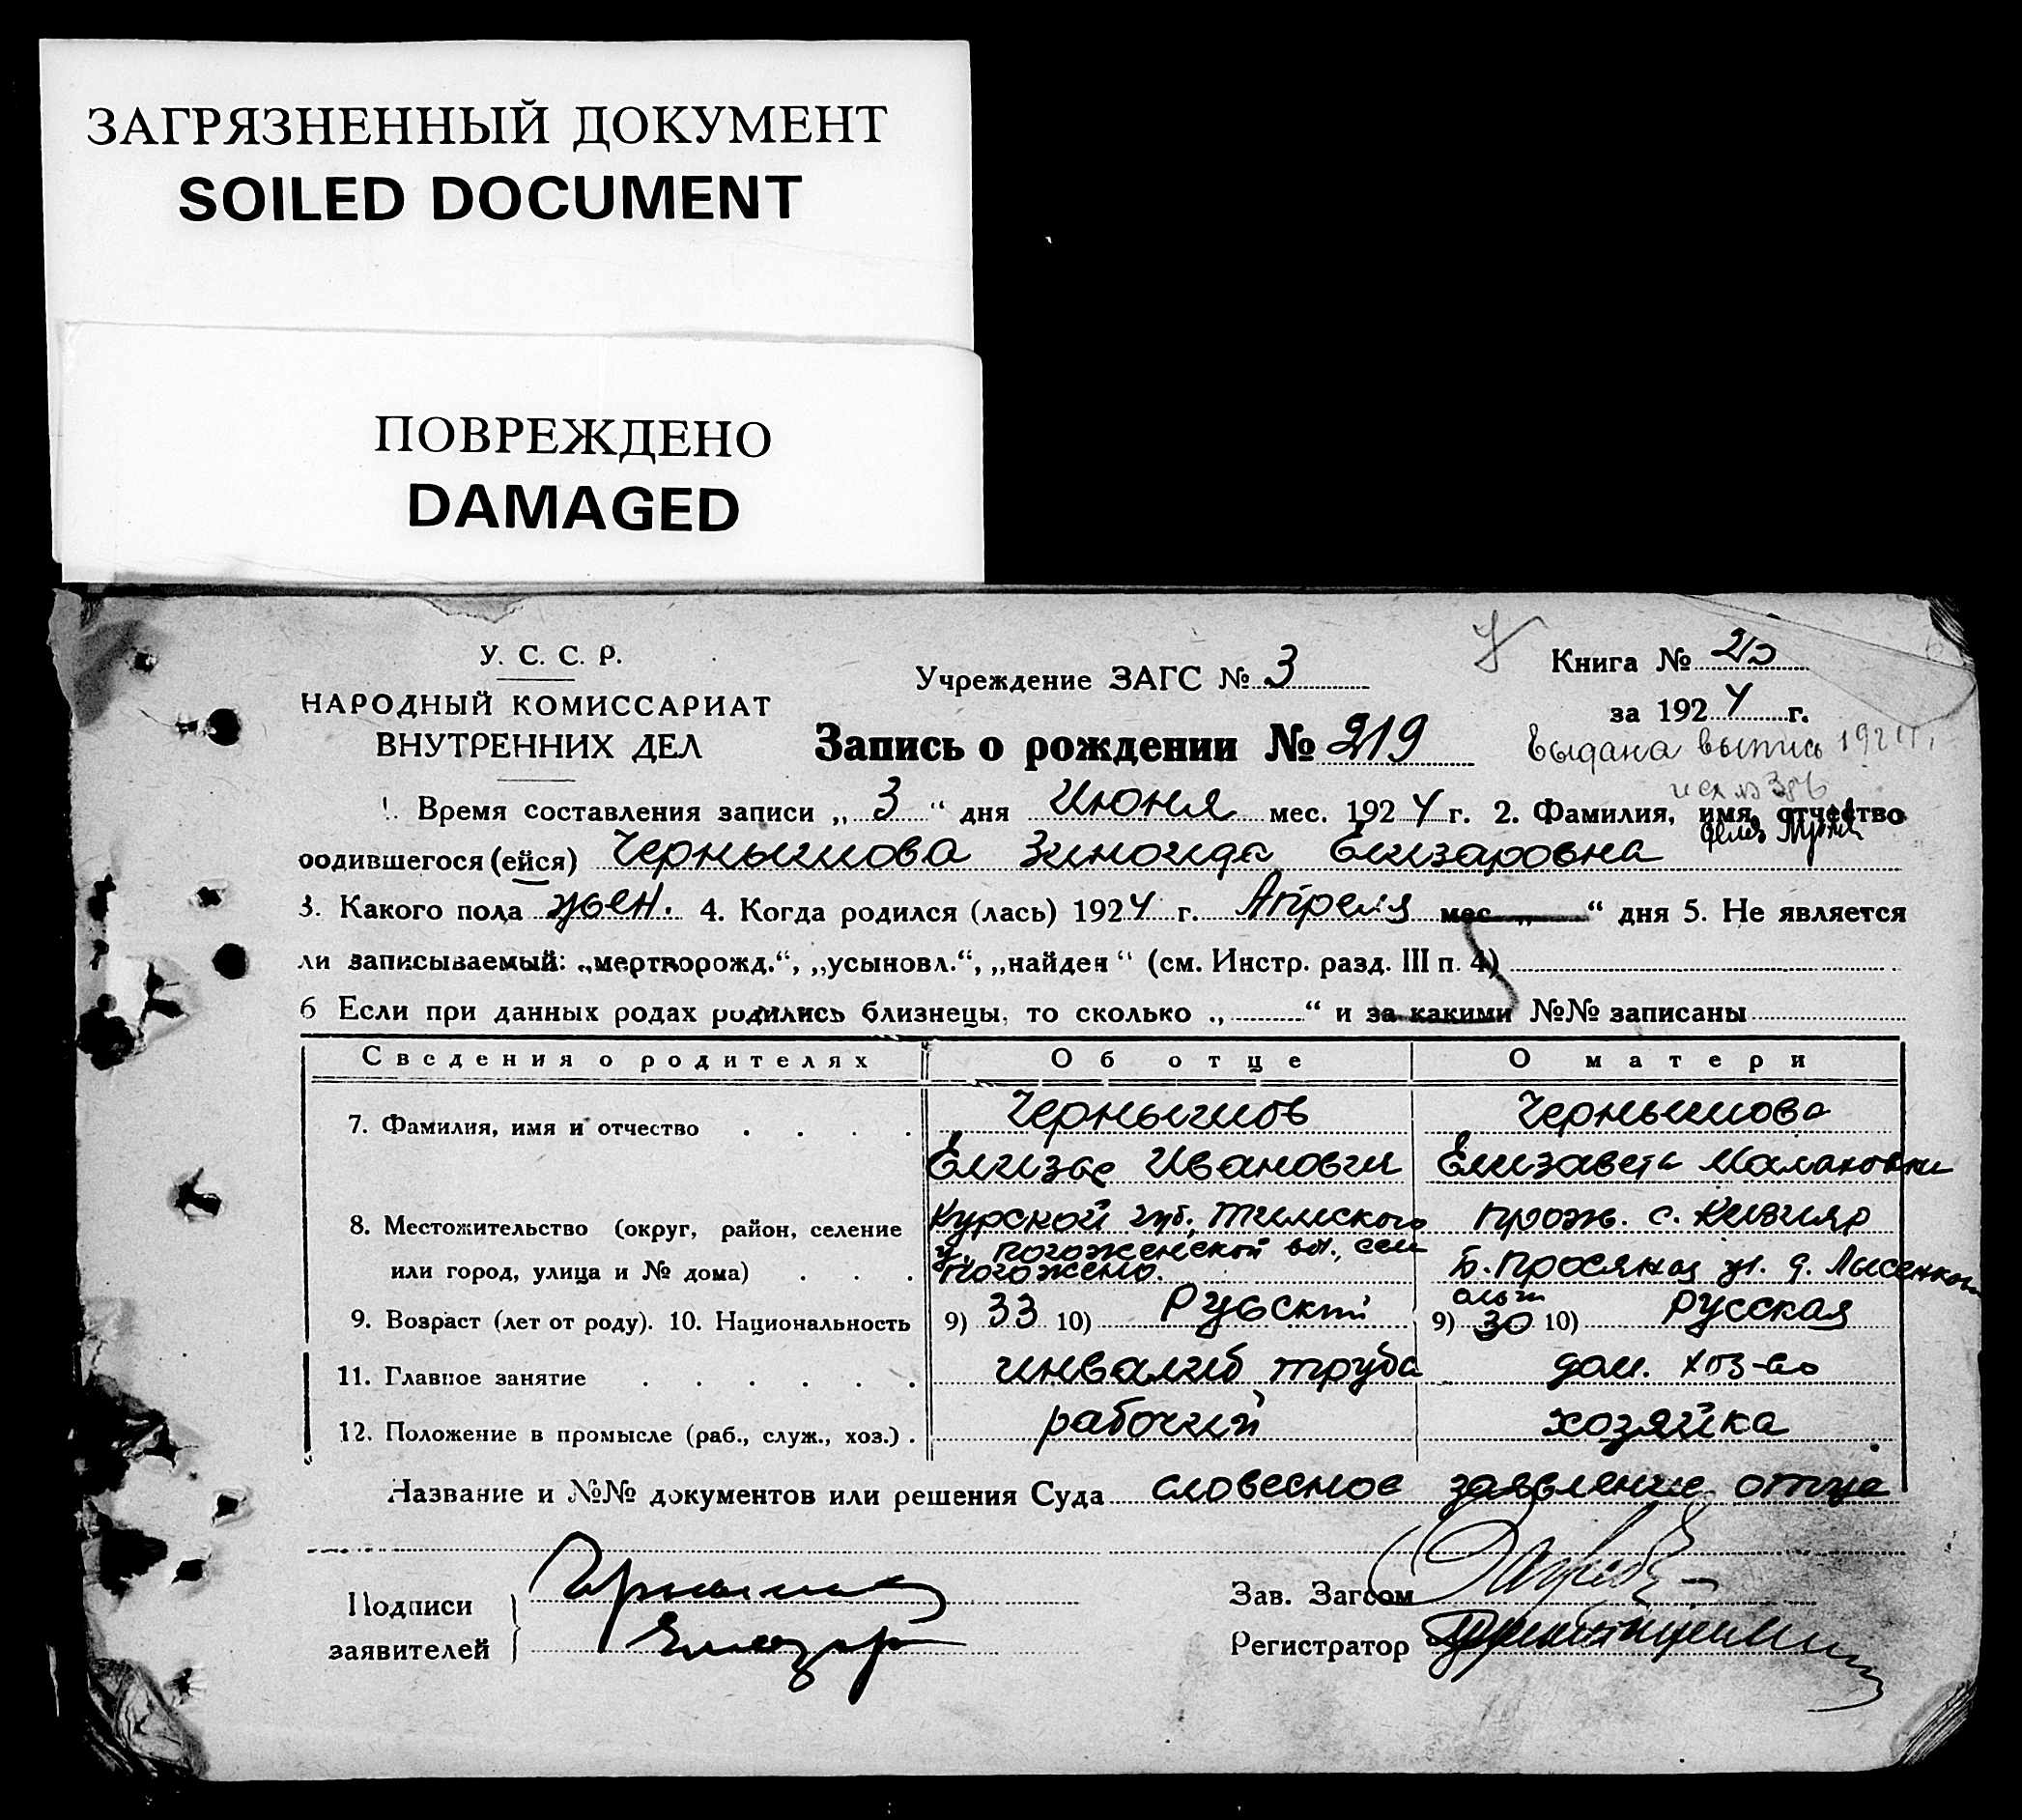 ЗАГРЯЗНЕННЫЙ ДОКУМЕНТ
SOILED DOCUMENT
ПОВРЕЖДЕНО
DAMAGED
У. С. С. Р.
НАРОДНЫЙ КОМИССАРИАТ
ВНУТРЕННИХ ДЕЛ
Учреждение ЗАГС № 3
Книга №
за 1924 г.
Запись о рождении № 219
выдана выпись 1924 г.
1. Время составления записи „ 3 “ дня Июня мес. 1924 г. 2. Фамилия, имя, отчество
родившегося (ейся) Чернышова Зиноида Елизаровна
3. Какого пола жен. 4. Когда родился (лась) 1924 г. Апреля мес. „ “ дня 5. Не является
ли записываемый: „мертворожд.“, „усыновл.“, „найден“ (см. Инстр. разд. III п. 4)
6 Если при данных родах родились близнецы, то сколько „ “ и за какими №№ записаны
Сведения о родителях Об отце О матери
7. Фамилия, имя и отчество Чернышов Чернышова
Елизар Иванович Елизавета
8. Местожительство (округ, район, селение Курской губ. Тимского прож. с.
у. погоженской вол., село
или город, улица и № дома) погожено. Б. Просяная ул. д.
9. Возраст (лет от роду). 10. Национальность 9) 33 10) Русский 9) 30 10) Русская
11. Главное занятие инвалид труда дом. хоз-во
12. Положение в промысле (раб., служ., хоз.) рабочий хозяйка
Название и №№ документов или решения Суда словесное заявление отца
Подписи
заявителей
Елизар
Зав. Загсом
Регистратор